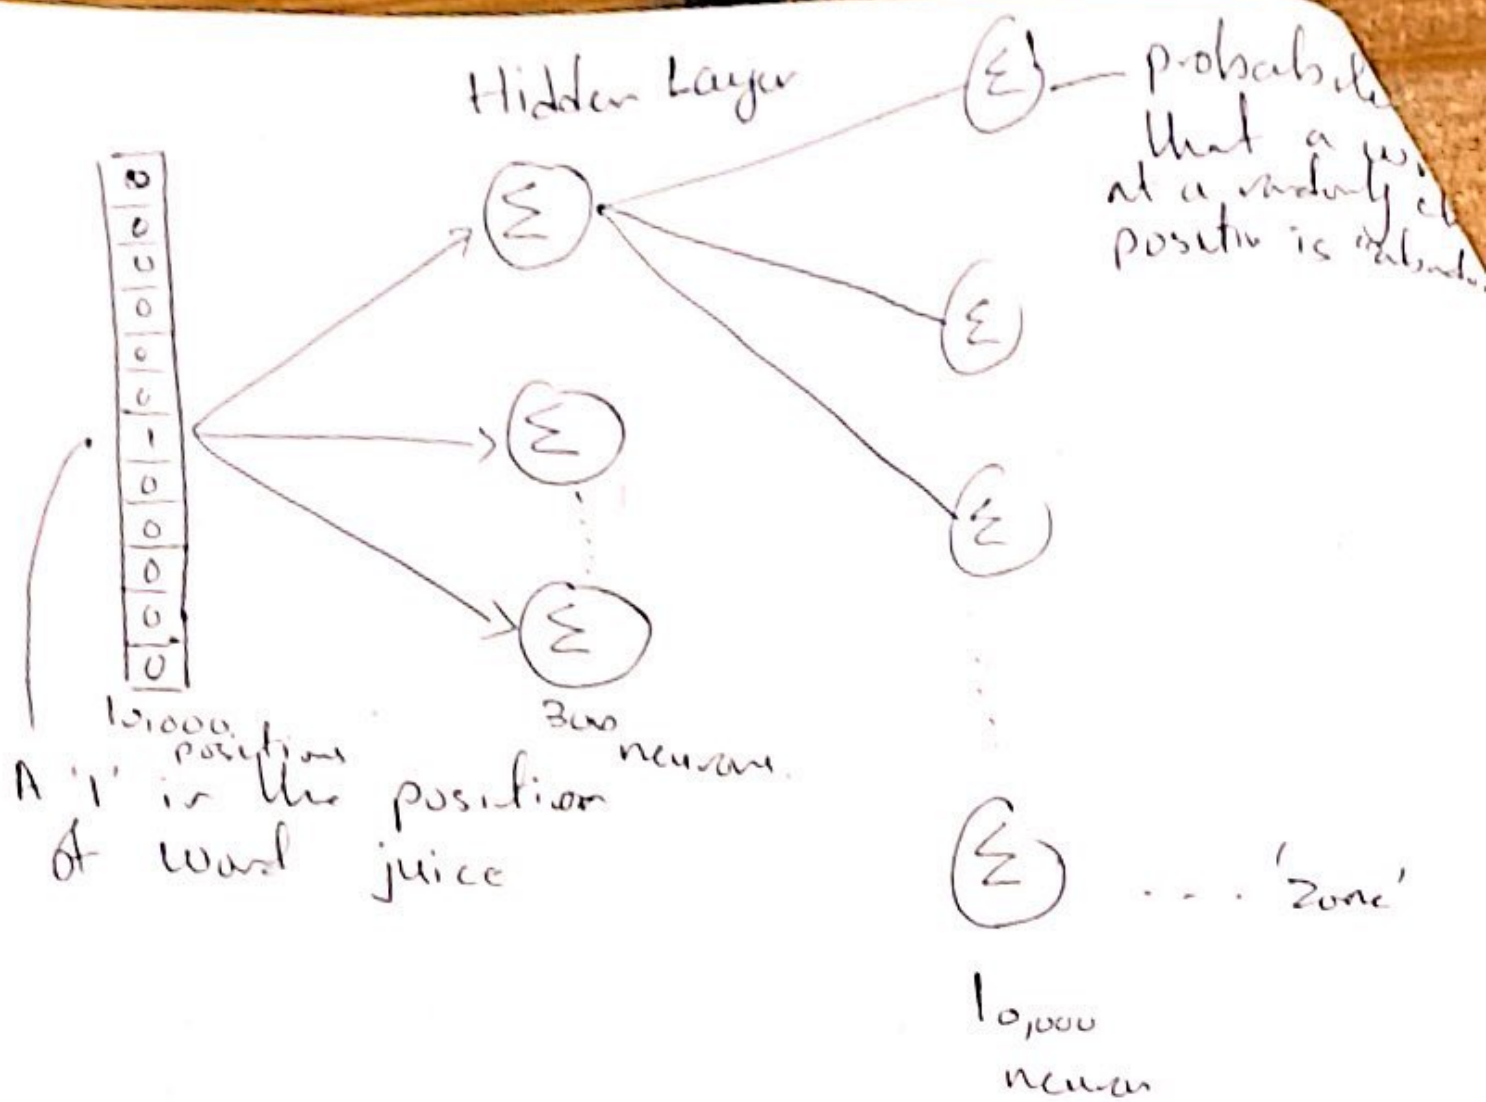 Hidden Layer
Σ
Σ
Σ
Σ
Σ
Σ
Σ
that a
at a randomly
position is
0
0
0
0
0
0
1
0
0
0
0
0
10,000
positions
300
neurons.
A '1' in the position
of word juice
.... 'zone'
10,000
neuron